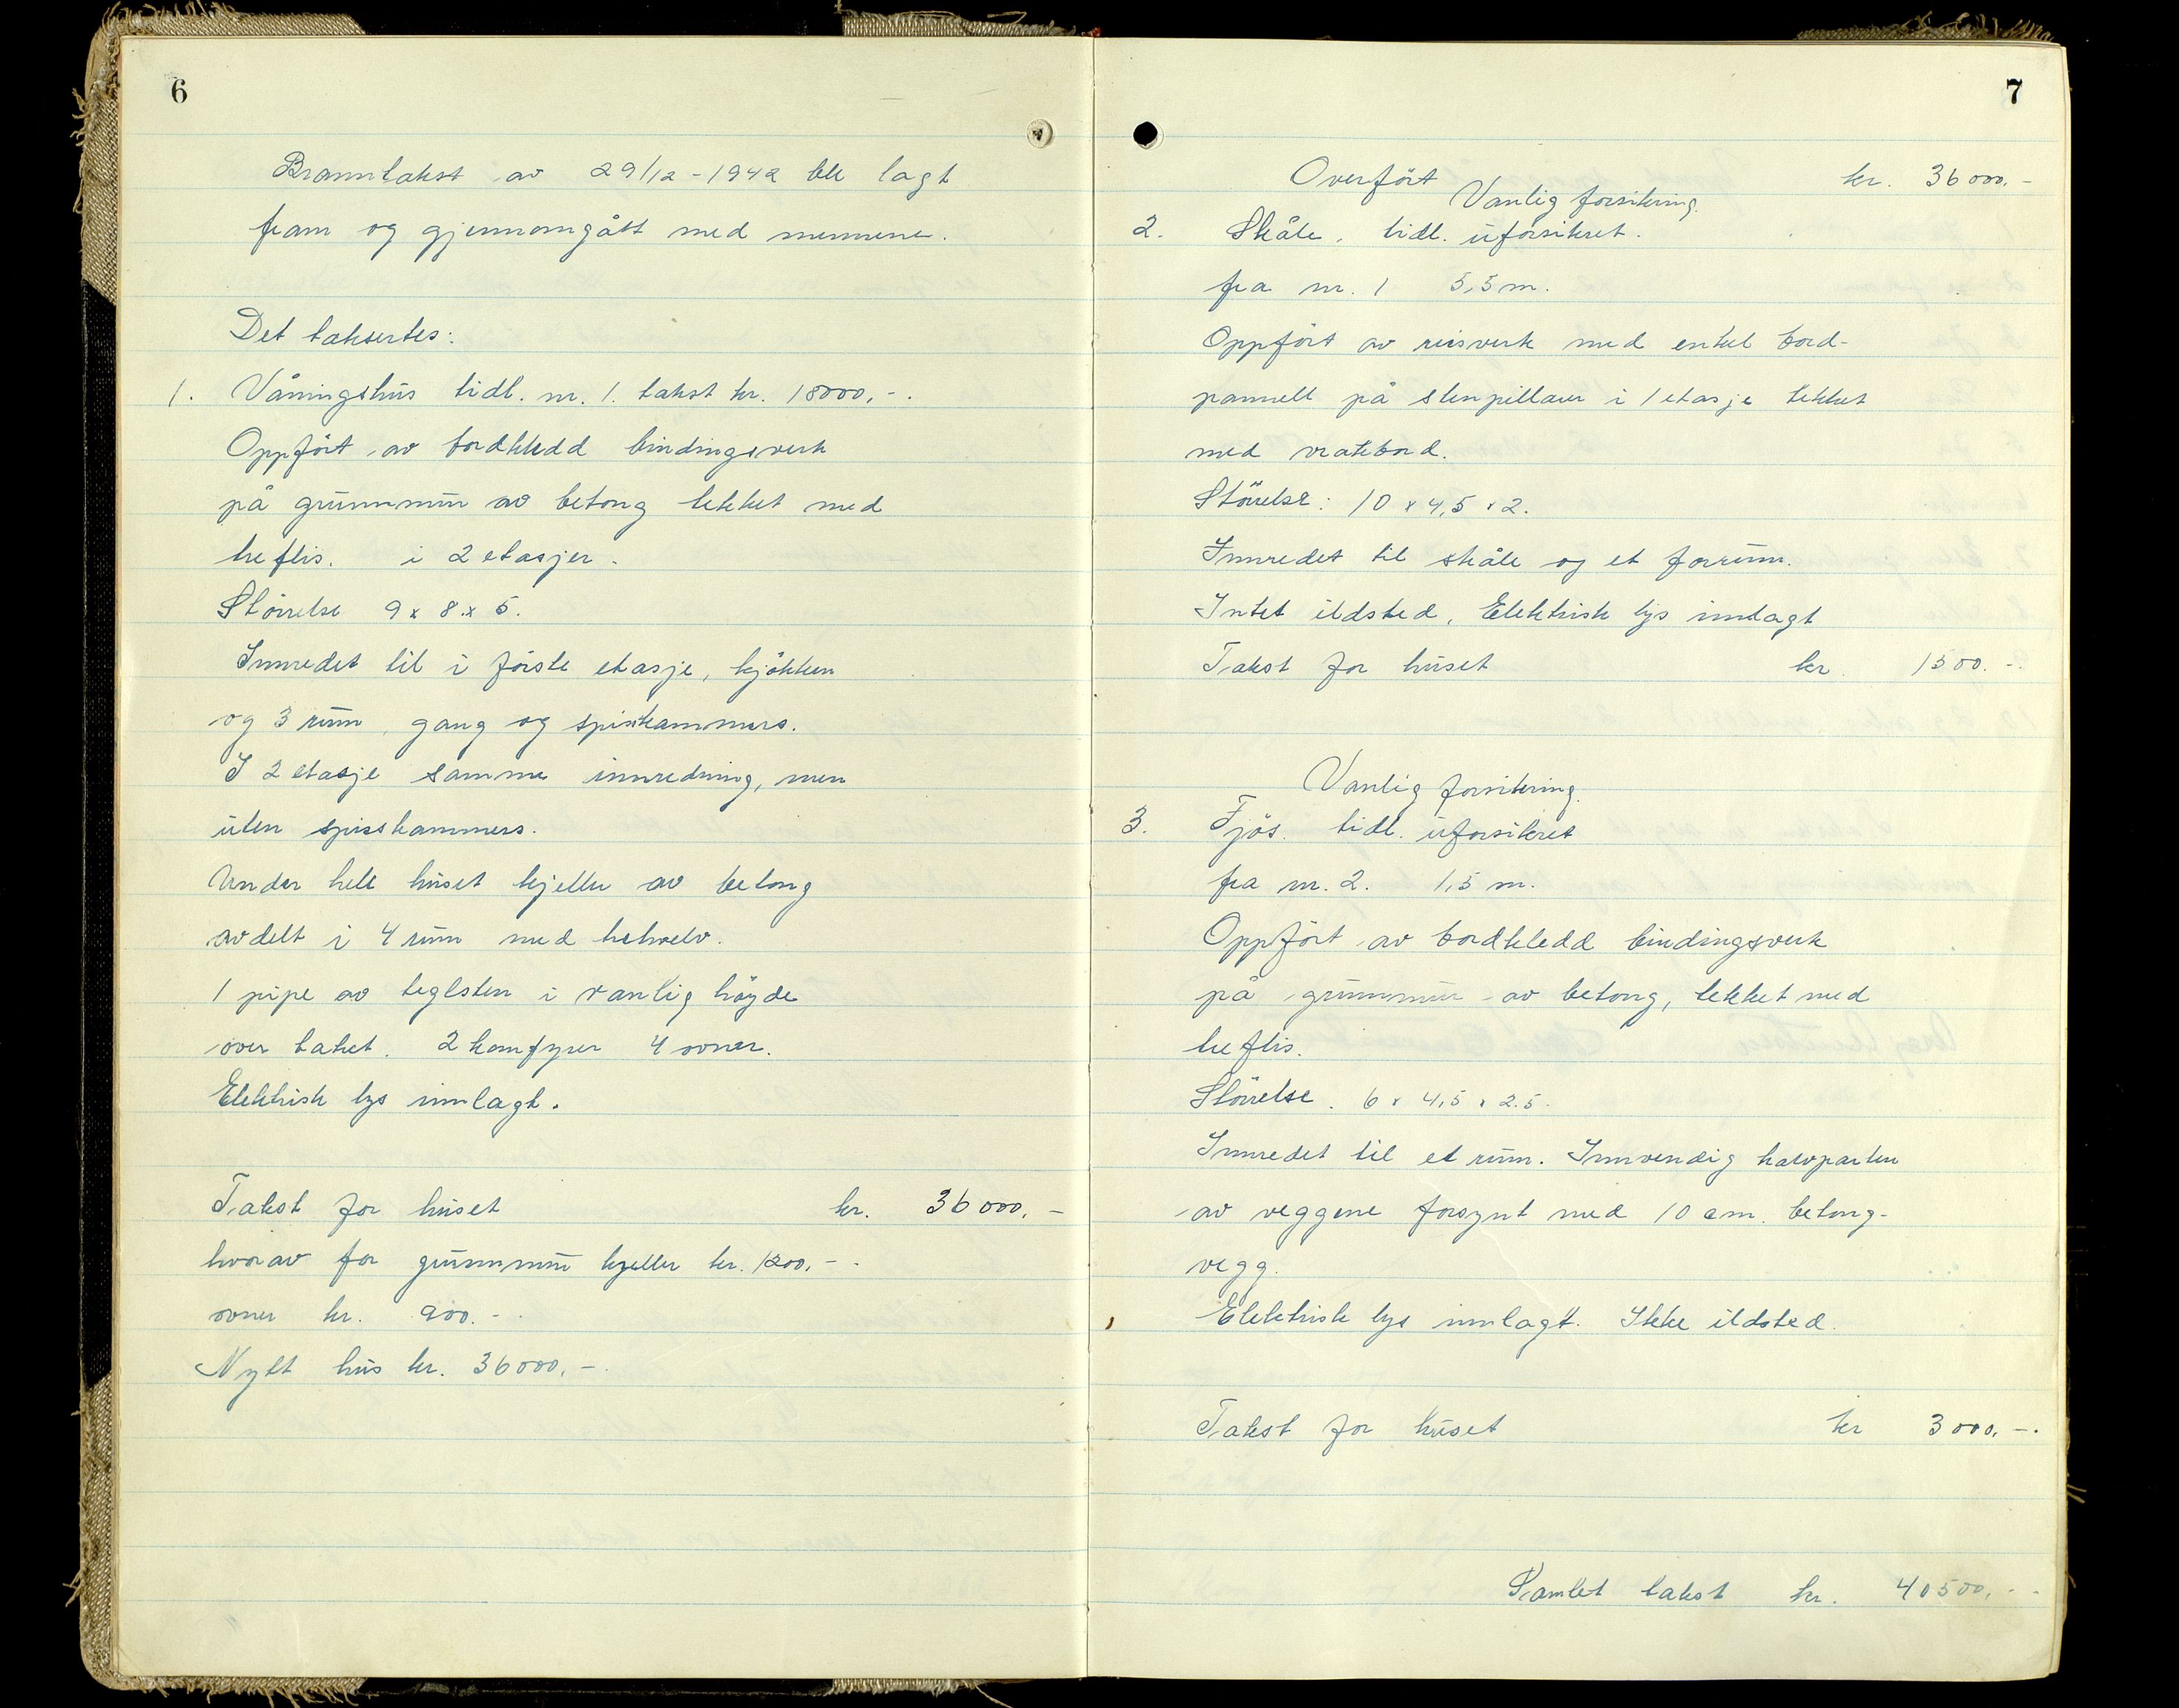 6
Branntakst av 29/12-1942 ble lagt
fram og gjennomgått med mennene.
Det taksertes:
1. Våningshus tidl. nr. 1. takst kr. 18000,-.
Oppført av bordkledd bindingsverk
på grunnmur av betong tekket med
treflis. i 2 etasjer.
Størrelse 9 x 8 x 5.
Innredet til i første etasje, kjøkken
og 3 rum, gang og spiskammers.
I 2 etasje samme innredning, men
uten spisskammers.
Under hele huset kjeller av betong
avdelt i 4 rum med trehvelv.
1 pipe av teglsten i vanlig høyde
over taket. 2 komfyrer 4 ovner.
Elektrisk lys innlagt.
Takst for huset kr. 36000,-
hvorav for grunnmur kjeller kr. 1200,-.
ovner kr. 900.-.
Nytt hus kr. 36000,-.
7
Overført kr. 36000,-
Vanlig forsikring.
2. Skåle, tidl. uforsikret.
fra nr. 1 5,5 m.
Oppført av reisverk med enkel bord-
pannell på stenpillarer i 1 etasje tekket
med vrakbord.
Størrelse: 10 x 4,5 x 2.
Innredet til skåle og et forrum.
Intet ildsted, Elektrisk lys innlagt
Takst for huset kr. 1500.-.
Vanlig forsikring.
3. Fjøs. tidl. uforsikret
fra nr. 2. 1,5 m.
Oppført av bordkledd bindingsverk
på grunnmur av betong, tekket med
treflis.
Størrelse. 6 x 4,5 x 2.5.
Innredet til et rum. Innvendig halvparten
av veggene forsynt med 10 cm. betong-
vegg.
Elektrisk lys innlagt. Ikke ildsted.
Takst for huset kr 3000,-.
Samlet takst kr. 40500,--